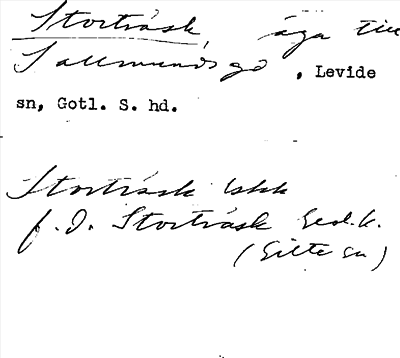 Storträsk, äga till
Sallmunds gd, Levide
sn, Gotl. S. hd.
Storträsk
f. d. Storträsk Ged.k.
(Silte sn)